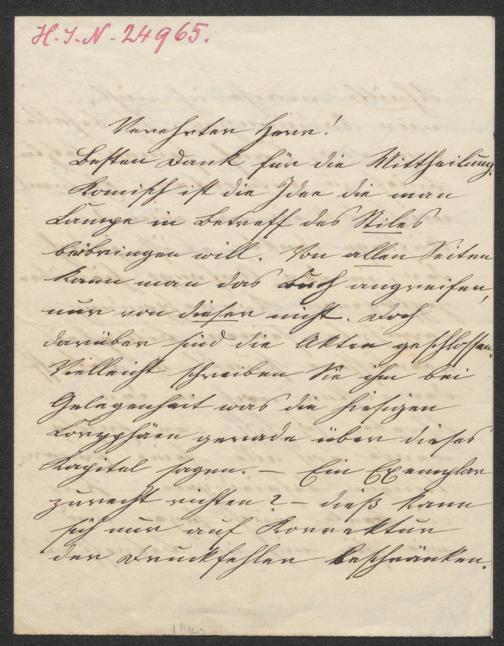 H.I.N. 24965.
Verehrter Herr!
Besten Dank für die Mittheilung.
Komisch ist die Idee die man
Lampe in Betreff des Stiles
beibringen will. Von allen Seiten
kann man das Buch angreifen,
nur von dieser nicht. Doch
darüber sind die Akten geschlossen.
Vielleicht schreiben Sie ihm bei
Gelegenheit was die hiesigen
Coryphäen gerade über dieses
Kapitel sagen. — Ein Exemplar
zurecht richten? — dieß kann
sich nur auf Korrektur
der Druckfehler beschränken.